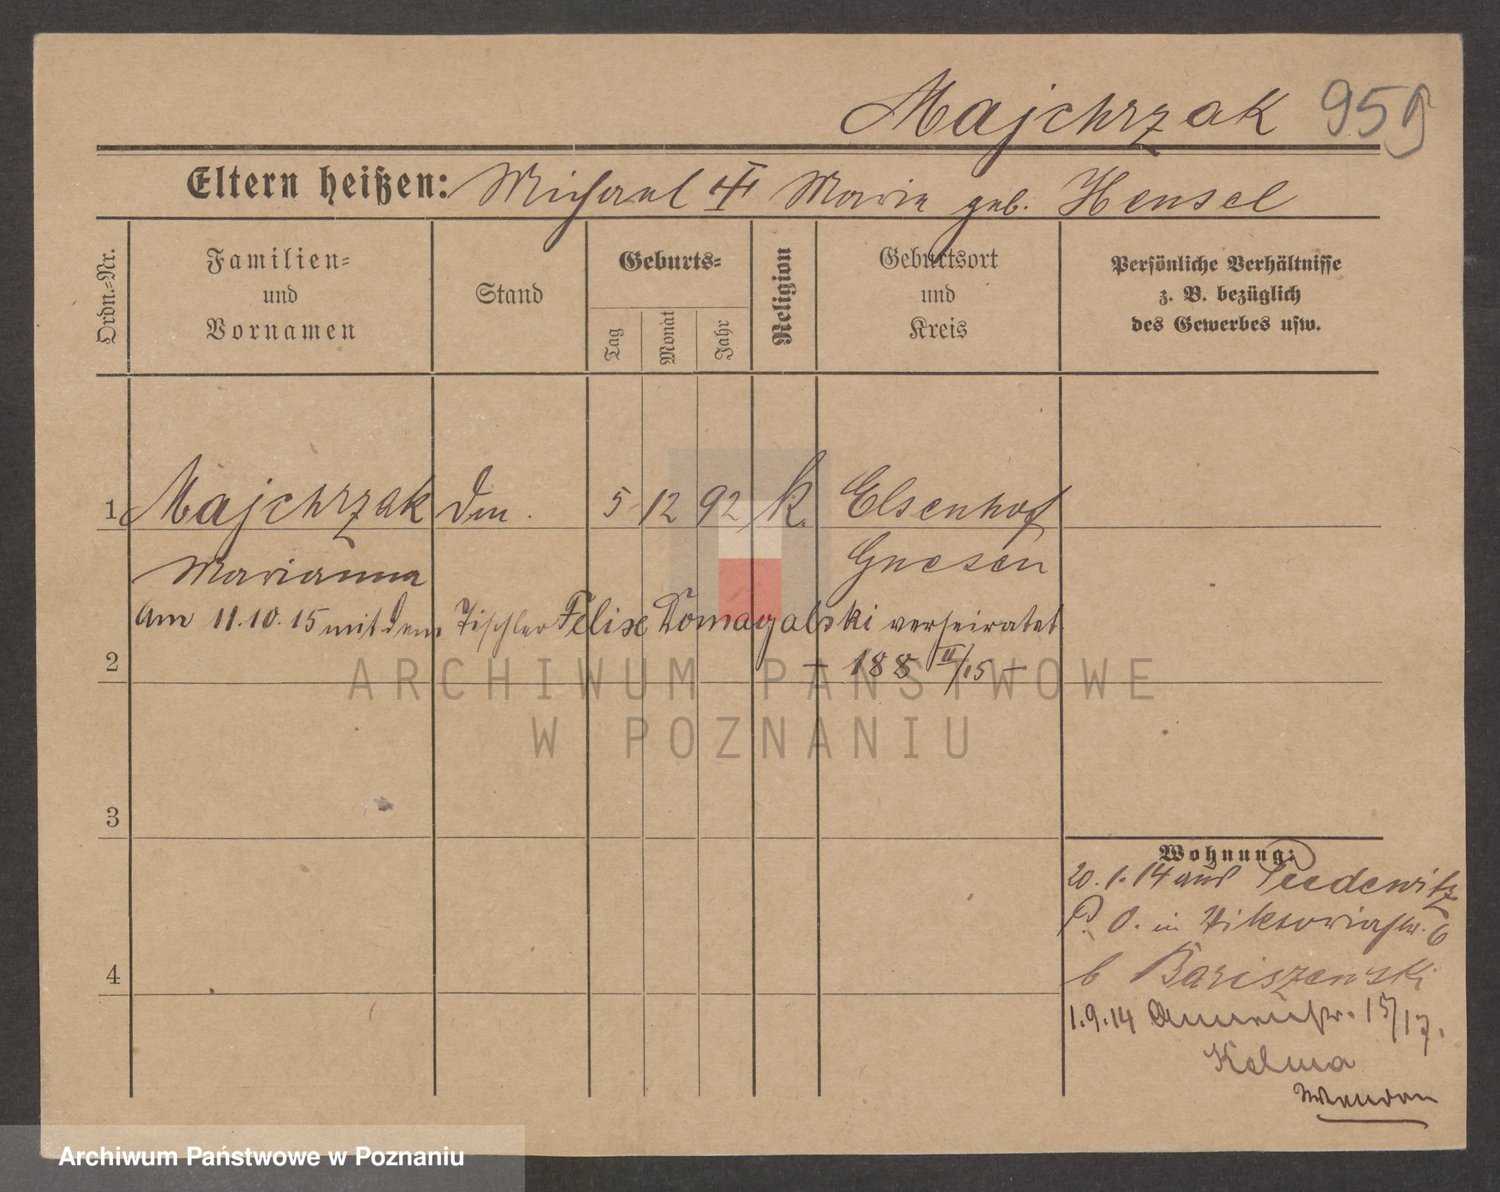 Majchrzak 959
Eltern heißen: Michael Marie geb. Hensel
Ordn.-Nr.
Familien-
und
Vornamen
Stand
Geburts-
Tag
Monat
Jahr
Religion
Geburtsort
und
Kreis
Persönliche Verhältnisse
z. B. bezüglich
des Gewerbes usw.
1 Majchrzak 5 12 92 k. Elsenhof
Marianna Gnesen
Am 11.10.15 mit dem Tischler Felix Domagalski verheiratet
2 – 188 II/15 –
3
Wohnung:
20.1.14 aus Pudewitz
P. O. in Viktoriastr. 6
b Bariszewski
4
1.9.14 15/17.
Wenden
ARCHIWUM PAŃSTWOWE
W POZNANIU
Archiwum Państwowe w Poznaniu